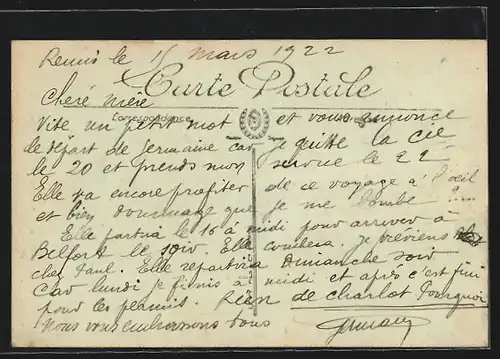 Reims le 15 Mars 1922
Carte Postale
Chère mère
Correspondance
Vite un petit mot et vous annonce
le départ de Germaine car je quitte la Cie
le 20 et prends mon service le 22
Elle va encore profiter de ce voyage à l'oeil
et bien dommage que je me
Elle partira le 16 à midi pour arriver à
Belfort le soir. Elle couchera. Je préviens
chez Paul. Elle repartira Dimanche soir
Car lundi je finis à midi et après c'est fini
pour les permis. Rien de charlot Pourquoi
Nous vous embrassons tous